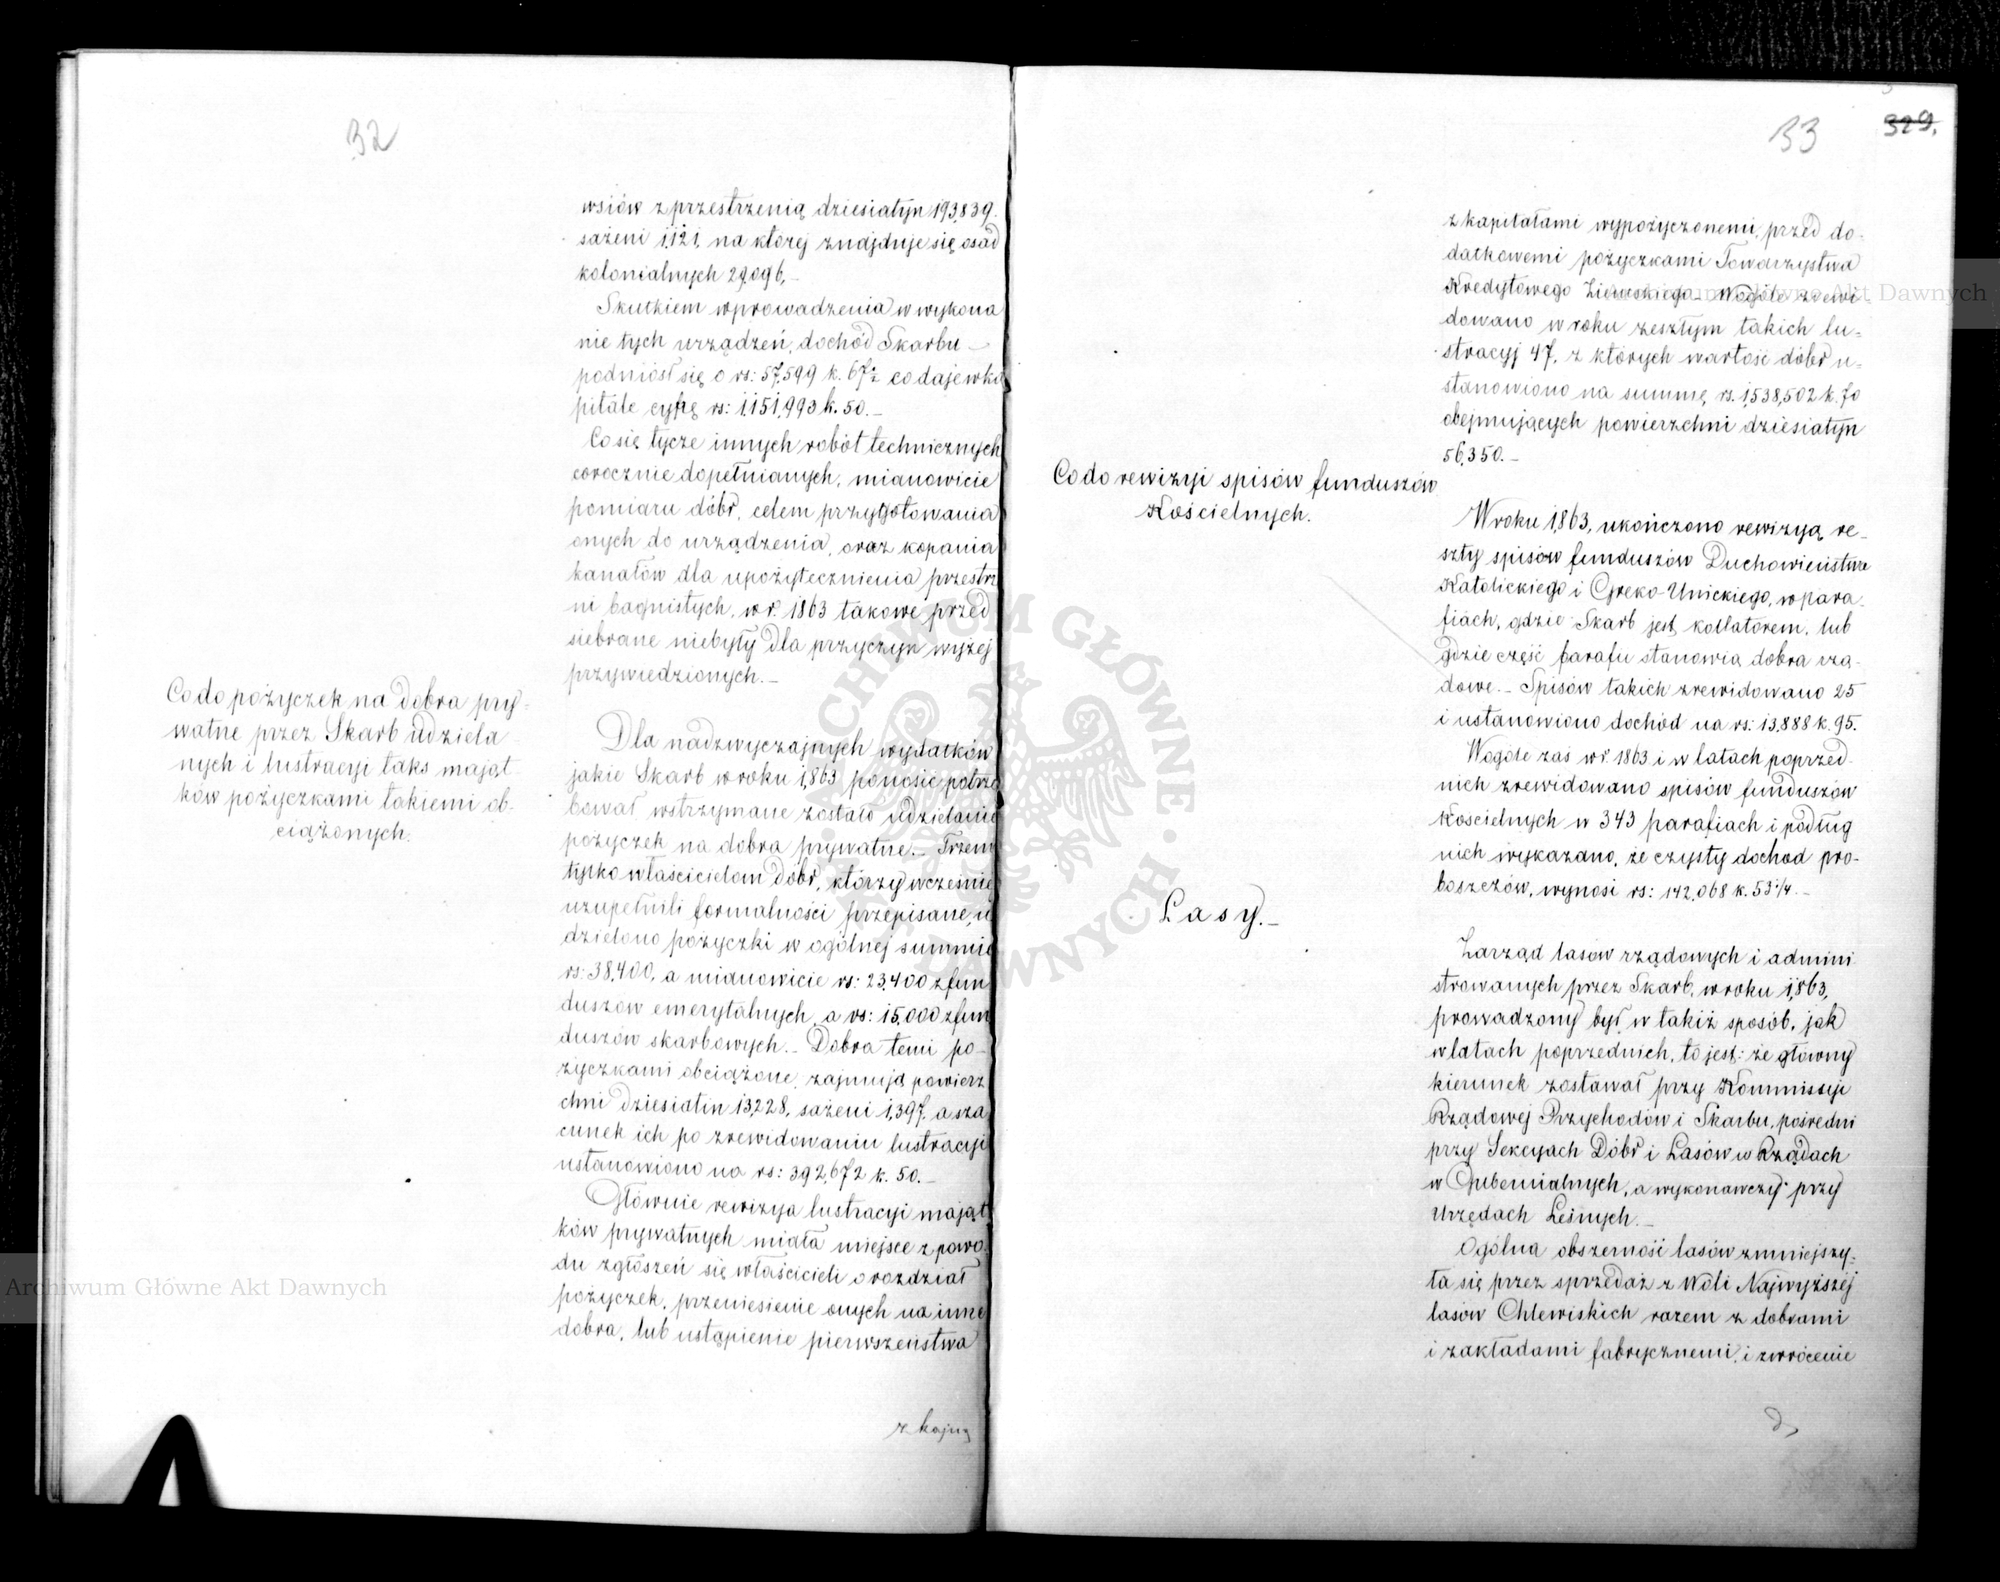 32
wsiów z przestrzenią dziesiatyn 193,839.
sażeni 1,121, na której znajduje się osad
kolonialnych 29,096,_
Skutkiem wprowadzenia w wykona
nie tych urządzeń, dochód Skarbu _
podniósł się o rs: 57,599 k. 67½ co daje w ka
pitale cyfrę rs: 1,151,993 k. 50._
Co się tycze innych robót technicznych
corocznie dopełnianych, mianowicie
pomiaru dóbr, celem przygotowania
onych do urządzenia, oraz kopania
kanałów dla upożytecznienia przestrze
ni bagnistych, w r. 1863 takowe przed
siebrane niebyły dla przyczyn wyżej
przywiedzionych._
Co do pożyczek na dobra pry=
watne przez Skarb udziela
nych i lustracyi taks mająt
ków pożyczkami takiemi ob-
ciążonych.
Dla nadzwyczajnych wydatków
jakie Skarb w roku 1,863 ponosić potrze
bował wstrzymane zostało udzielanie
pożyczek na dobra prywatne._ Trzem
tylko właścicielom dóbr, którzy wcześniej
uzupełnili formalności przepisane, u
dzielono pożyczki w ogólnej summie
rs: 38,400, a mianowicie rs: 23,400 z fun
duszów emerytalnych, a rs: 15,000 z fun
duszów skarbowych._ Dobra temi po-
życzkami obciążone, zajmują powierz
chni dziesiatin 13,228, sażeni 1,397, a sza
cunek ich po zrewidowaniu lustracyi
ustanowiono na rs: 392,672 k. 50._
Głównie rewizya lustracyi mająt
ków prywatnych miała miejsce z powo
du zgłoszeń się właścicieli o rozdział
pożyczek, przeniesienie onych na inne
dobra, lub ustąpienie pierwszeństwa
33
329.
z kapitałami wypożyczonemi, przed do-
datkowemi pożyczkami Towarzystwa
Kredytowego Ziemskiego._ Wogóle zrewi-
dowano w roku zeszłym takich lu=
stracyj 47, z których wartość dóbr u=
stanowiono na summę rs. 1,538,502 k. 70
obejmujących powierzchni dziesiatyn
56,350._
Co do rewizyi spisów funduszów
Kościelnych.
W roku 1,863, ukończono rewizyą re_
szty spisów funduszów Duchowieństwa
Katolickiego i Greko-Unickiego, w para_
fiach, gdzie Skarb jest kollatorem, lub
gdzie część parafii stanowią dobra rzą-
dowe._ Spisów takich zrewidowano 25
i ustanowiono dochód na rs: 13,888 k. 95.
Wogóle zaś w r. 1863 i w latach poprzed-
nich zrewidowano spisów funduszów
Kościelnych w 343 parafiach i podług
nich wykazano, że czysty dochód pro-
boszczów, wynosi rs: 142,068 k. 53¼._
Lasy._
Zarząd lasów rządowych i admini
strowanych przez Skarb, w roku 1,863,
prowadzony był w takiż sposób, jak
w latach poprzednich, to jest: że główny
kierunek zostawał przy Kommissyi
Rządowej Przychodów i Skarbu, pośredni
przy Sekcyach Dóbr i Lasów w Rządach
w Gubernialnych, a wykonawczy przy
Urzędach Leśnych._
Ogólna obszerność lasów zmniejszy=
ła się przez sprzedaż z Woli Najwyższej
lasów Chlewiskich razem z dobrami
i zakładami fabrycznemi, i zwrócenie
ARCHIWUM GŁÓWNE AKT DAWNYCH
Archiwum Główne Akt Dawnych
Archiwum Główne Akt Dawnych